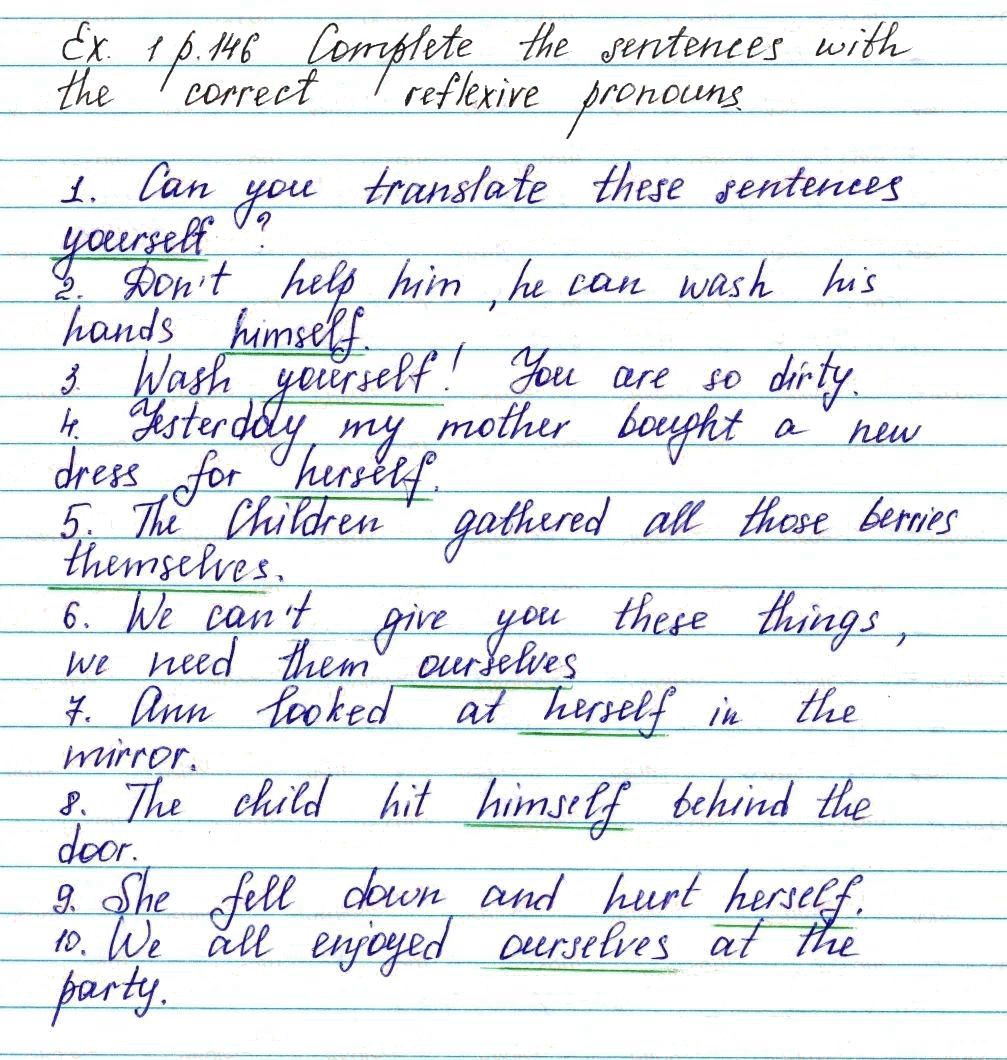 Ex. 1 p.146 Complete the sentences with
the correct reflexive pronouns.
1. Can you translate these sentences
yourself ?
2. Don't help him, he can wash his
hands himself.
3. Wash yourself! You are so dirty.
4. Yesterday my mother bought a new
dress for herself.
5. The Children gathered all those berries
themselves.
6. We can't give you these things,
we need them ourselves
7. Ann looked at herself in the
mirror.
8. The child hit himself behind the
door.
9. She fell down and hurt herself.
10. We all enjoyed ourselves at the
party.